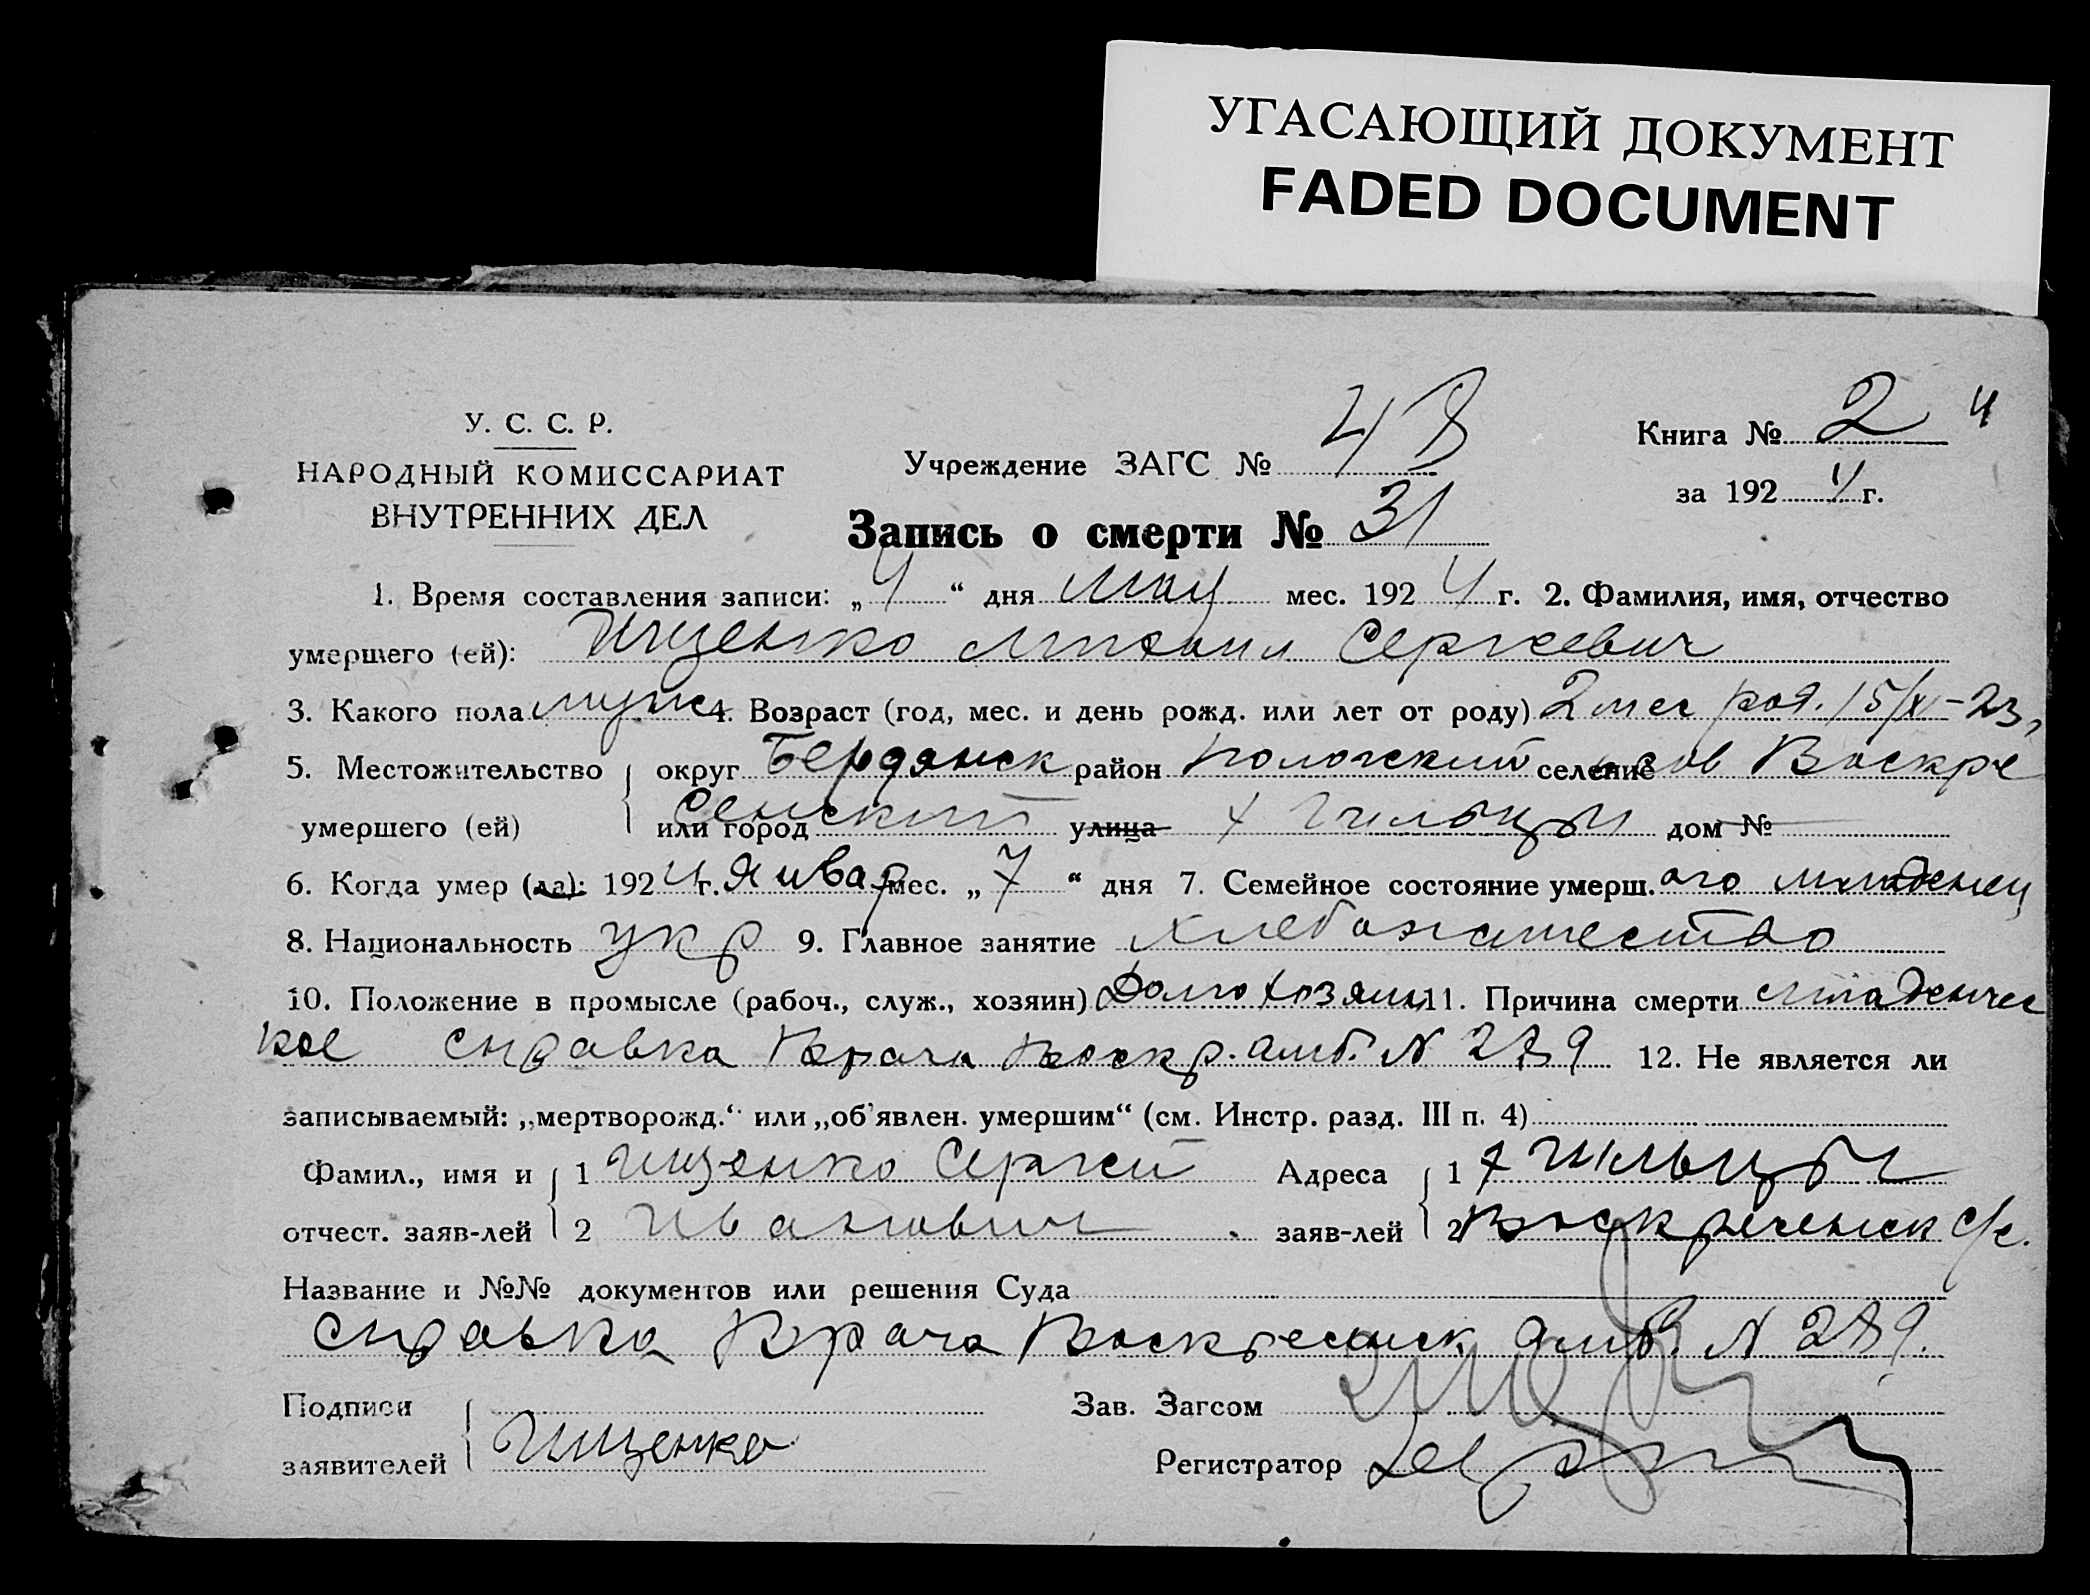 УГАСАЮЩИЙ ДОКУМЕНТ
FADED DOCUMENT
У. С. С. Р.
НАРОДНЫЙ КОМИССАРИАТ
ВНУТРЕННИХ ДЕЛ
Учреждение ЗАГС № 48
Книга № 2 4
за 1924 г.
Запись о смерти № 31
1. Время составления записи: „4“ дня Мая мес. 1924 г. 2. Фамилия, имя, отчество
умершего (ей): Ищенко Михаил Сергеевич
3. Какого пола муж 4. Возраст (год, мес. и день рожд. или лет от роду) 2 мес род. 15/XI-23
5. Местожительство округ Бердянск район Пологский селение Воскре
умершего (ей) сенский или город улица х Гильцы дом №
6. Когда умер (ла): 1924 г. Январ мес. „7“ дня 7. Семейное состояние умерш. ого младенец
8. Национальность укр 9. Главное занятие хлебопашество
10. Положение в промысле (рабоч., служ., хозяин) хозяин 11. Причина смерти младенчес
кое справка Врача Воскр. амб. N 289 12. Не является ли
записываемый: „мертворожд.“ или „об'явлен. умершим“ (см. Инстр. разд. III п. 4)
Фамил., имя и 1 Ищенко Сергей Адреса 1 х Гильцы
отчест. заяв-лей 2 Иванович заяв-лей 2 Воскресенск с/с.
Название и №№ документов или решения Суда
справка Врача Воскресенск амб. N 289.
Подписи Зав. Загсом
заявителей Ищенко Регистратор